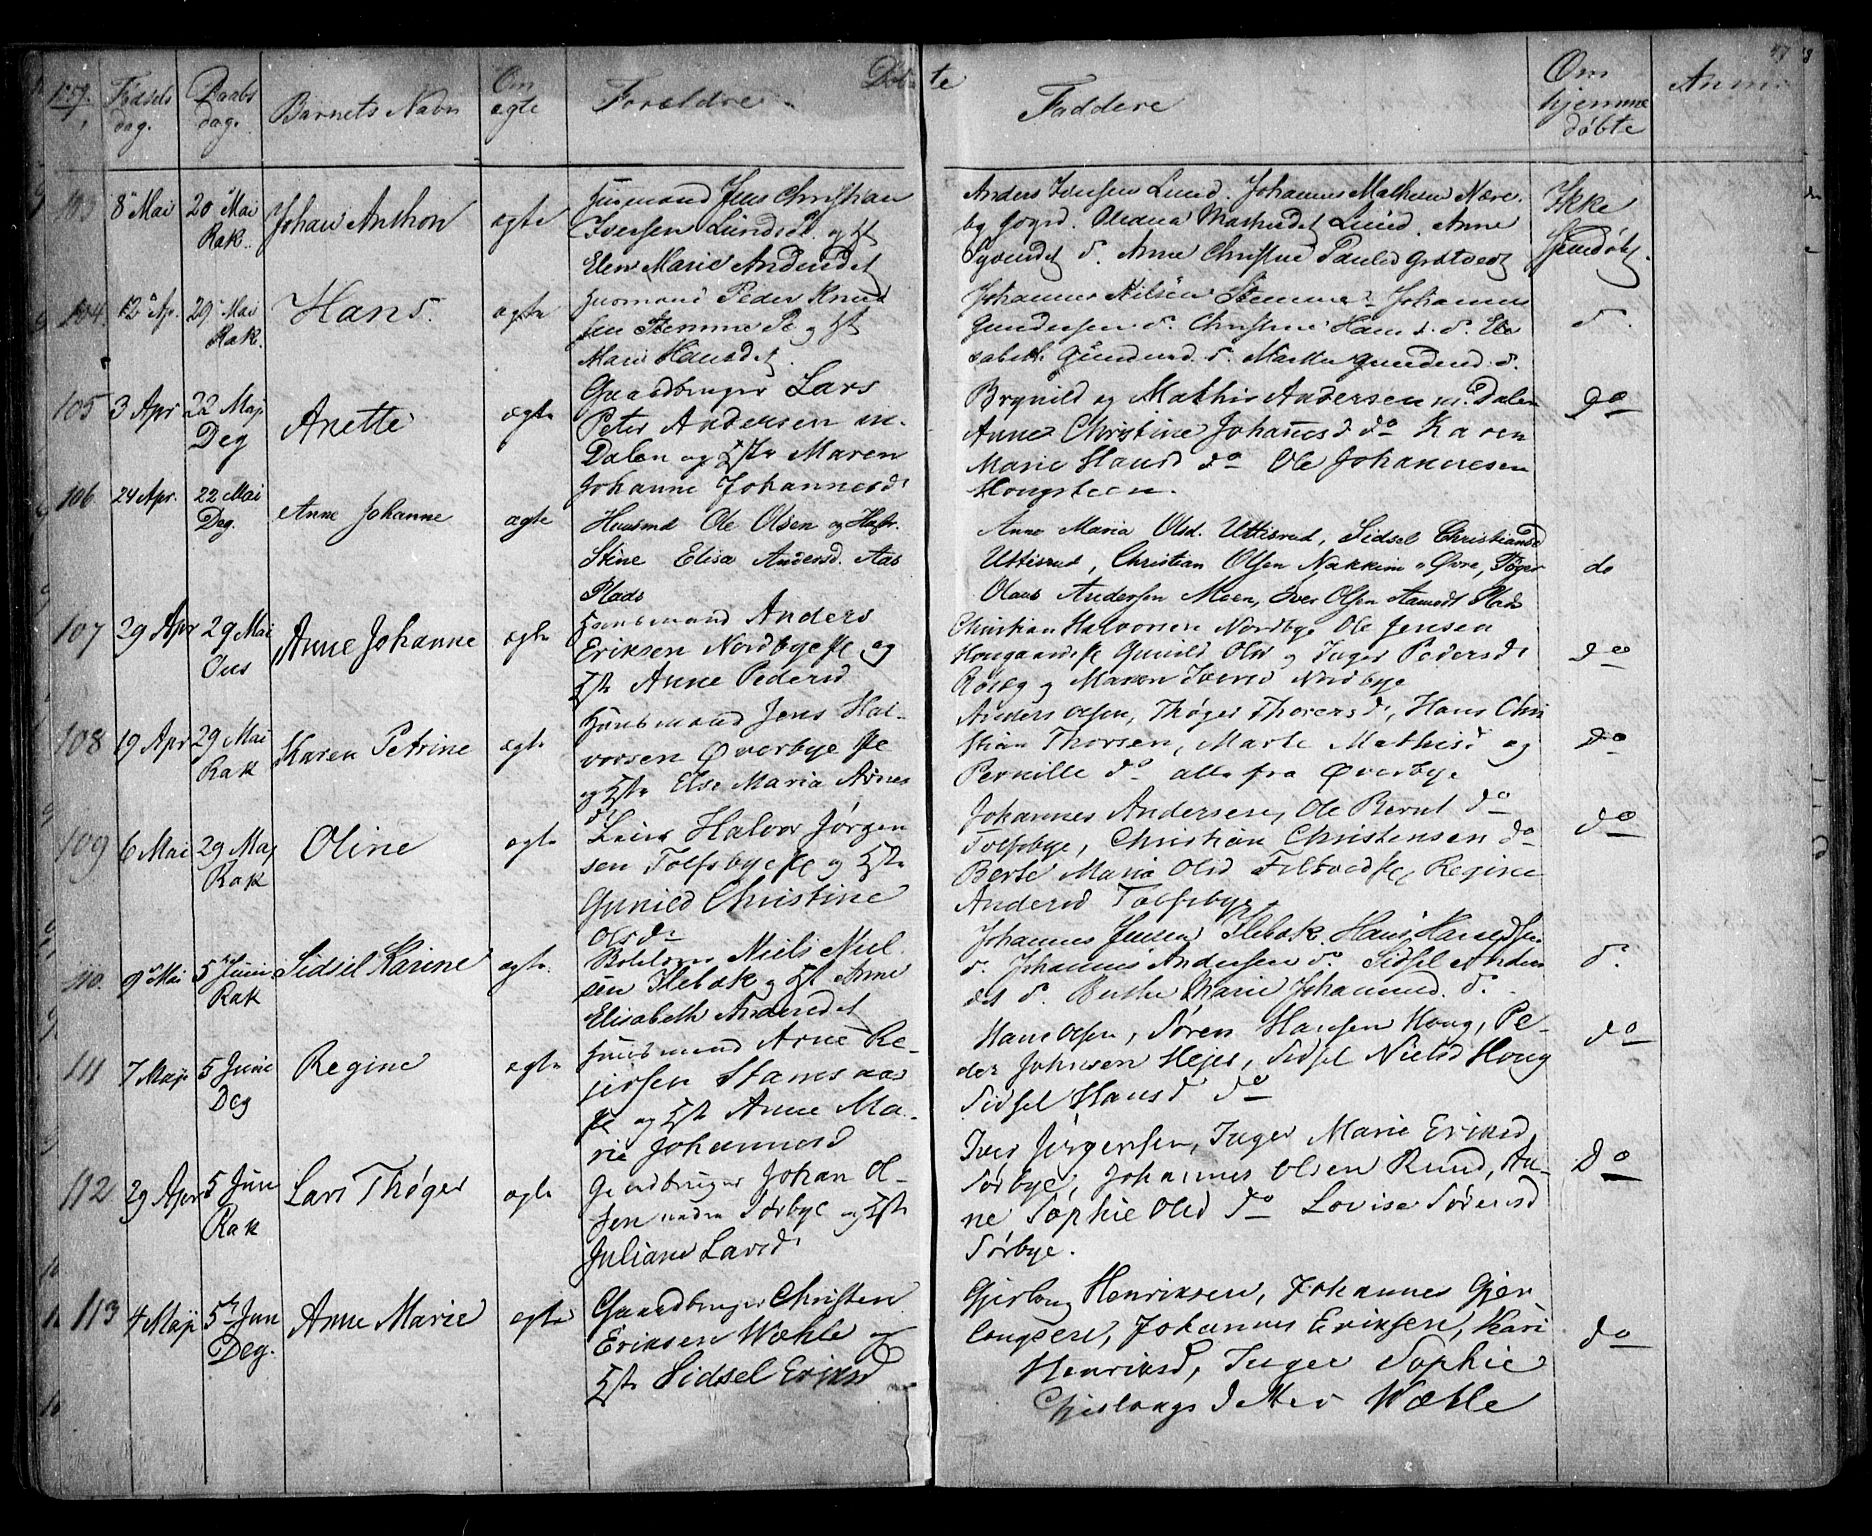 Døbte
Fødsels dag. Daabs dag. Barnets Navn Om ægte Forældre Faddere Om hjemme døbte Anm.
103 8 Mai 20 Mai Rak. Johan Anthon ægte Huusmand Jens Christian
Iversen Lunds Pl. og H
Elen Marie Andersdet
Anders Iversen Lund. Johannes Mathesen Nære-
by Anne
d. Anne Christine
Ikke
104. 12 Ap. 29 Mai Rak. Hans. ægte Huusmand Peder Knud
sen Stemme Pl og Hst
Mari Hansdet
Johannes Nilsen Stemme Johannes
Gundersen d. Christine Hans d. d. Eli
sabeth Gunders d. Marthe Gundersd. d.
d.
105 3 Apr 22 Maj Deg Anette ægte Gaardbruger Lars
Peter Andersen m.
Dalen og Hst Maren
Johanne Johannesd
Brynild og Mathis Andersen m. Dalen
Anne Christine Johanesd do Karen
Marie Hansd do Ole Johannesen
Hougsteen.
do
106 24 Apr. 22 Mai Deg. Anne Johanne ægte Huusmd Ole Olsen og Hustr.
Stine Elisa Andersd. Aas
Plads
Anne Maria Olsd. Uttisrud, Sidsel Christiansd
Uttisrud, Christian Olsen Nakkim Øvre,
Olaus Andersen Moen, Iver Olsen Plads
do
107 29 Apr 29 Mai Ous Anne Johanne ægte Huusmand Anders
Eriksen Nordbye Pl og
Hst Anne Pedersd
Christian Halvorsen Nordbye Ole Jensen
Gunild Olsd og Inger Pedersd
og Maren Iversd Nordbye
do
108 19 Apr 29 Mai Rak Karen Petrine ægte Huusmand Jens Hal-
vorsen Øverbye Pl
og Hst Else Maria Arnes
d
Anders Olsen, Thøger Thorersd, Hans Chri
stian Thorsen, Marte Mathisd og
Pernille do alle fra Øverbye
do
109 6 Mai 29 Maj Rak Oline ægte Halvor Jørgen
sen Tolfsbye Pl og Hst
Gunild Christine
Olsd
Johannes Andersen, Ole Bernt do
Tolfsbye, Christian Christensen do
Berte Maria Olsd Pl Regine
Andersd Tolfsbye
do
110. 9 Mai 5 Juni Rak Sidsel Karine ægte Niels Niel
sen Slebak og Hst Anne
Elisabeth Andersdet
Johannes Jensen Slebak. Hans
d. Johannes Andersen do Sidsel Anders
det d. Berthe Marie Johannesd. d.
d.
111 7 Maij 5 Juni Deg Regine ægte Huusmand Arne Re-
jersen Stamsaas
Pl og Hst Anne Ma-
rie Johannesd
Hans Olsen, Søren Hansen Houg, Pe-
der Johnsen Hejer, Sidsel Nielsd Houg
Sidsel Hansd do
do
112 29 Apr 5 Jun Rak Lars Thøger ægte Gaardbruger Johan Ol-
sen nedre Sørbye og Hst
Juliane Larsd
Iver Jørgensen, Inger Marie Eriksd
Sørbye, Johannes Olsen Rund, An-
ne Sophie Olsd do Lovise Sørensd
Sørbye.
do
113 4 Maij 5 Jun Deg. Anne Marie ægte Gaardbruger Christen
Eriksen Wæhle og
Hst Sidsel Eriksd
Gjerloug Henriksen, Johannes Gjer
lougsen, Johannes Eriksen, Kari
Henriksd, Inger Sophie
Gjerlougs Datter Wæhle
do